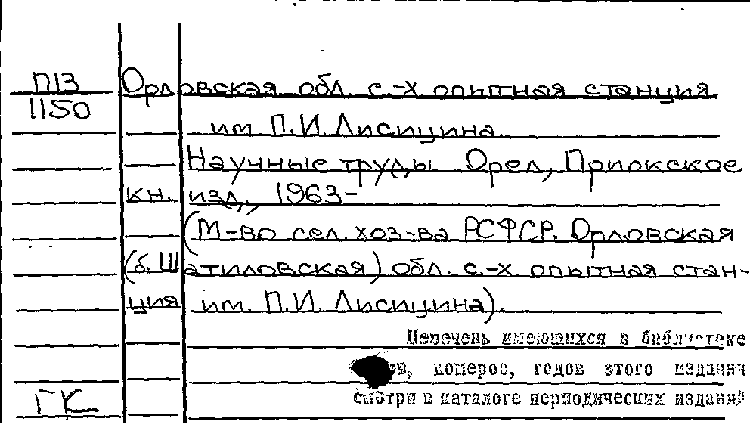 П13 Орловская обл. с.-х опытная станция
1150
им. П.И. Лисицина
Научные труды Орел, Приокское
кн. изд., 1963-
(М-во сел. хоз-ва РСФСР. Орловская
(б. Шатиловская) обл. с.-х опытная стан-
ция им. П.И. Лисицина).
Перечень имеющихся в библиотеке
номеров, годов этого издания
смотри в каталоге периодических изданий
ГК